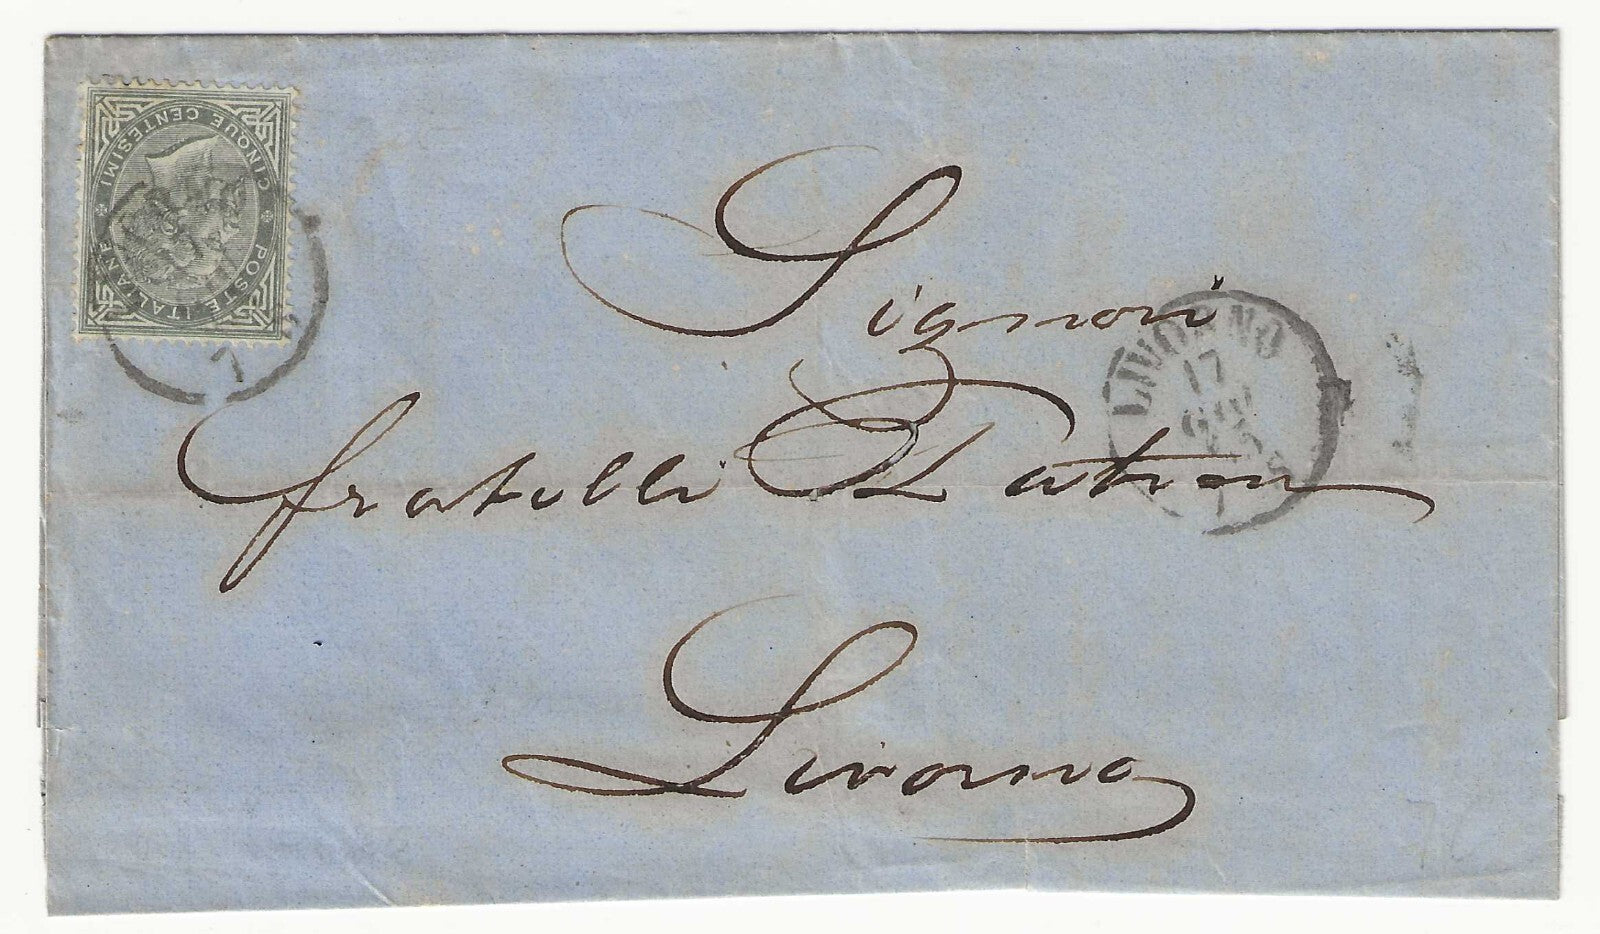 POSTE ITALIANE
CINQUE CENTESIMI
7
Signori
LIVORNO
17
GIU
fratelli
Livorno